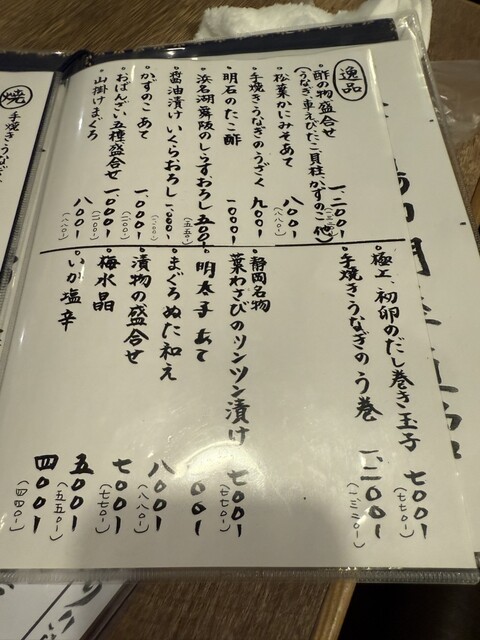 逸品
酢の物盛合せ
(うなぎ、車えび、たこ、貝柱、かずのこ 他) 一、二〇〇-
松葉かにみそあて 八〇〇- (八八〇-)
手焼きうなぎのうざく 九〇〇-
明石のたこ酢 一、〇〇〇-
浜名湖舞阪のしらすおろし 五〇〇- (五五〇-)
醤油漬けいくらおろし 一、〇〇〇-
かずのこあて 一、〇〇〇-
おばんざい五種盛合せ 一、〇〇〇-
山掛けまぐろ 八〇〇- (八八〇-)
極上、初卵のだし巻き玉子 七〇〇- (七七〇-)
手焼きうなぎのう巻 一、二〇〇- (一、三二〇-)
静岡名物
葉わさびのツンツン漬け 七〇〇- (七七〇-)
明太子あて
まぐろぬた和え 八〇〇- (八八〇-)
漬物の盛合せ 七〇〇- (七七〇-)
梅水晶 五〇〇- (五五〇-)
いか塩辛 四〇〇- (四四〇-)
焼
手焼きうなぎ